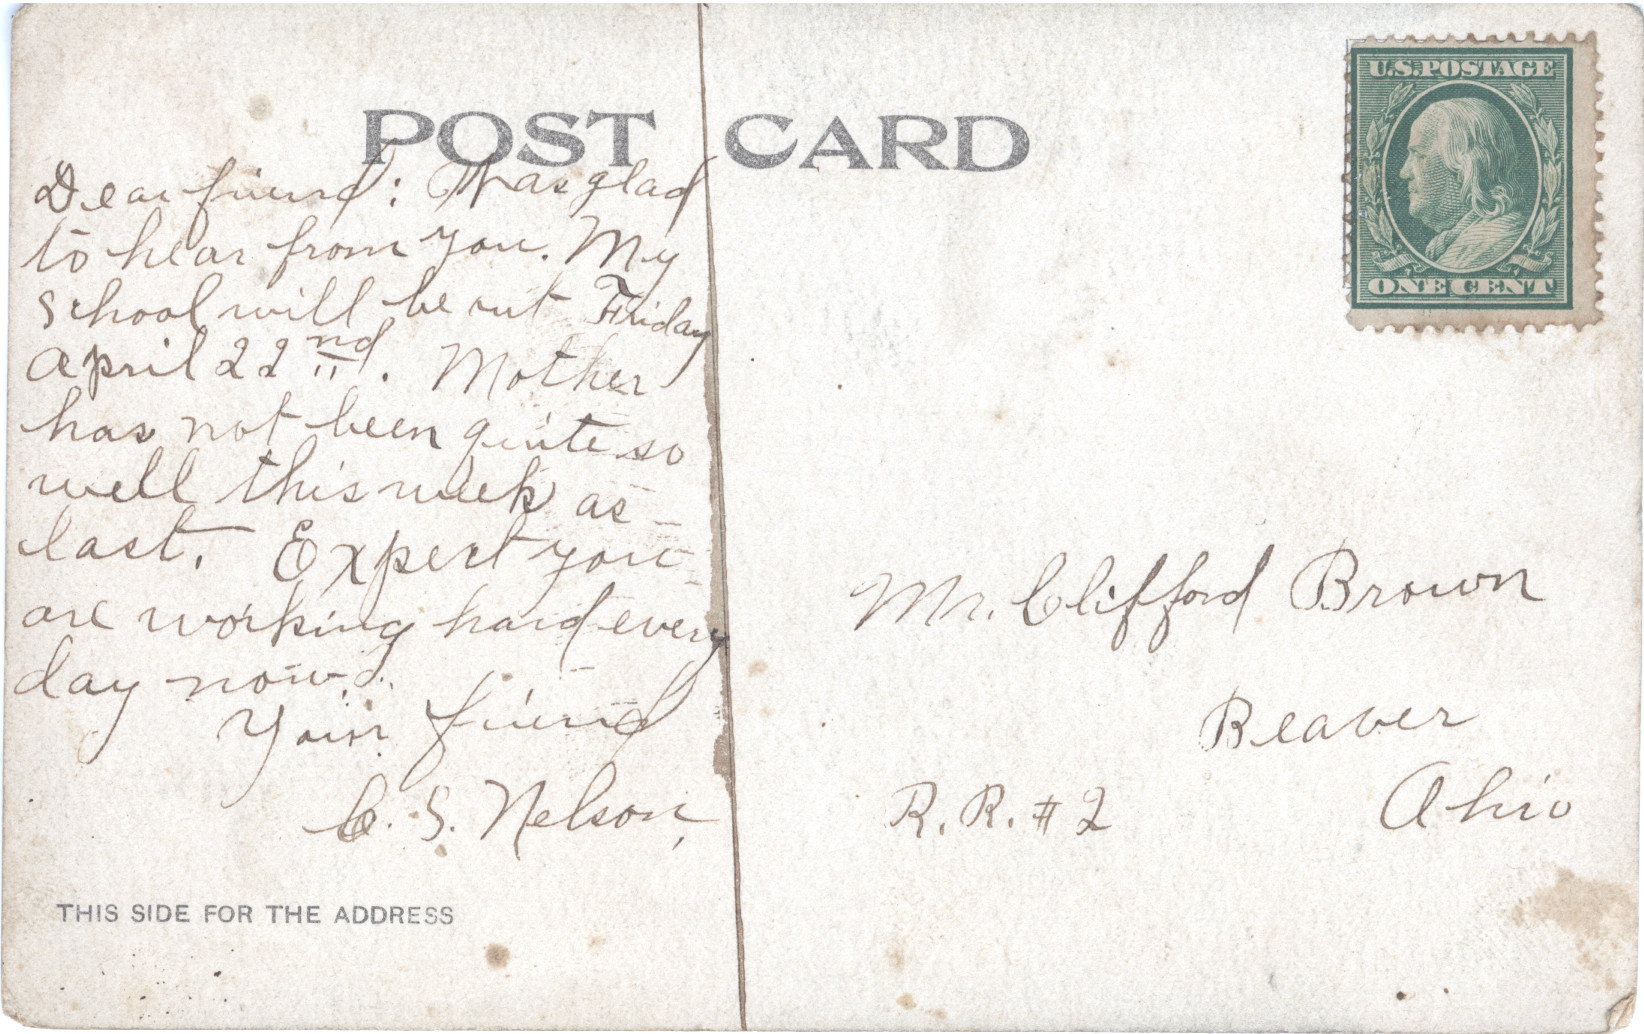 POST CARD
U.S. POSTAGE
ONE CENT
Dear friend: Was glad
to hear from you. My
school will be out Friday
April 22nd. Mother
has not been quite so
well this week as
last. Expect you
are working hard every
day now.
Your friend
C. S. Nelson,
THIS SIDE FOR THE ADDRESS
Mr. Clifford Brown
Beaver
R. R. #2 Ohio